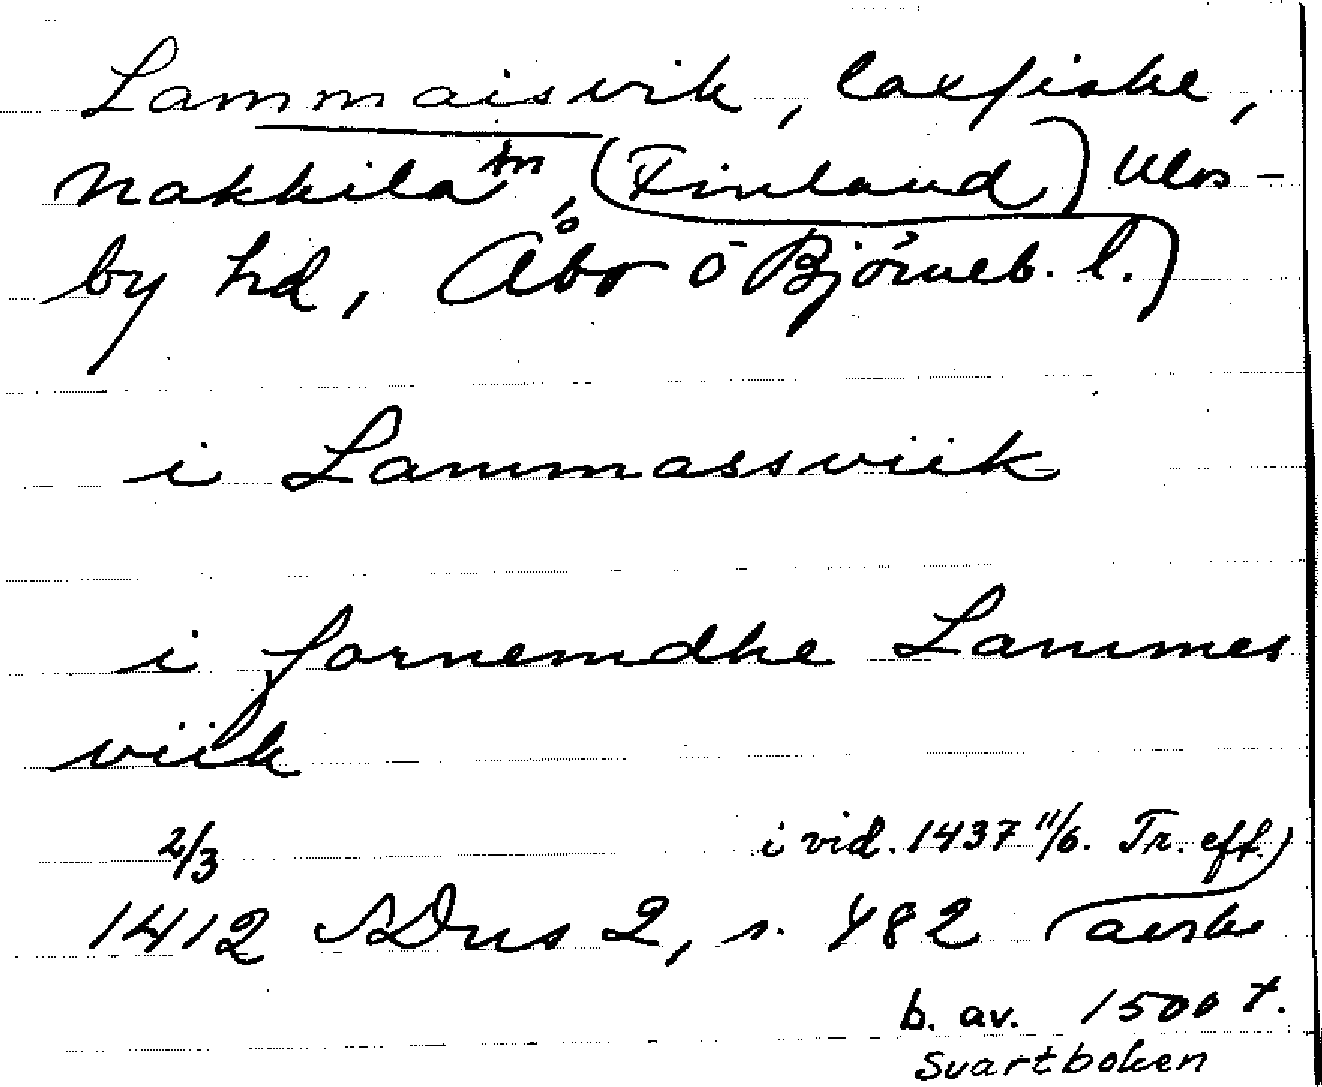 Lammaisvik, laxfiske,
Nakkila sn, (Finland) Ulvs-
by hd, Åbo o Björneb. l.)
i Lammassviik
i fornemdhe Lammes
viik
2/3 i vid. 1437 11/6. Tr. eft.)
1412 SDns 2, s. 482
b. av. 1500 t.
Svartboken